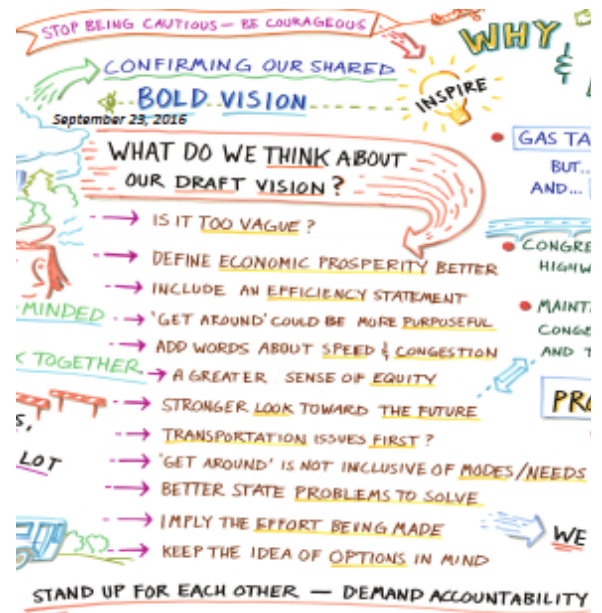 STOP BEING CAUTIOUS — BE COURAGEOUS
CONFIRMING OUR SHARED
BOLD VISION
September 23, 2016
INSPIRE
WHY
&
WHAT DO WE THINK ABOUT
OUR DRAFT VISION?
IS IT TOO VAGUE?
DEFINE ECONOMIC PROSPERITY BETTER
INCLUDE AN EFFICIENCY STATEMENT
'GET AROUND' COULD BE MORE PURPOSEFUL
ADD WORDS ABOUT SPEED & CONGESTION
A GREATER SENSE OF EQUITY
STRONGER LOOK TOWARD THE FUTURE
TRANSPORTATION ISSUES FIRST?
'GET AROUND' IS NOT INCLUSIVE OF MODES/NEEDS
BETTER STATE PROBLEMS TO SOLVE
IMPLY THE EFFORT BEING MADE
KEEP THE IDEA OF OPTIONS IN MIND
STAND UP FOR EACH OTHER — DEMAND ACCOUNTABILITY
MINDED
TOGETHER
LOT
GAS TA
BUT...
AND...
CONGRE
HIGHW
MAINT
CONGE
AND T
PRO
WE